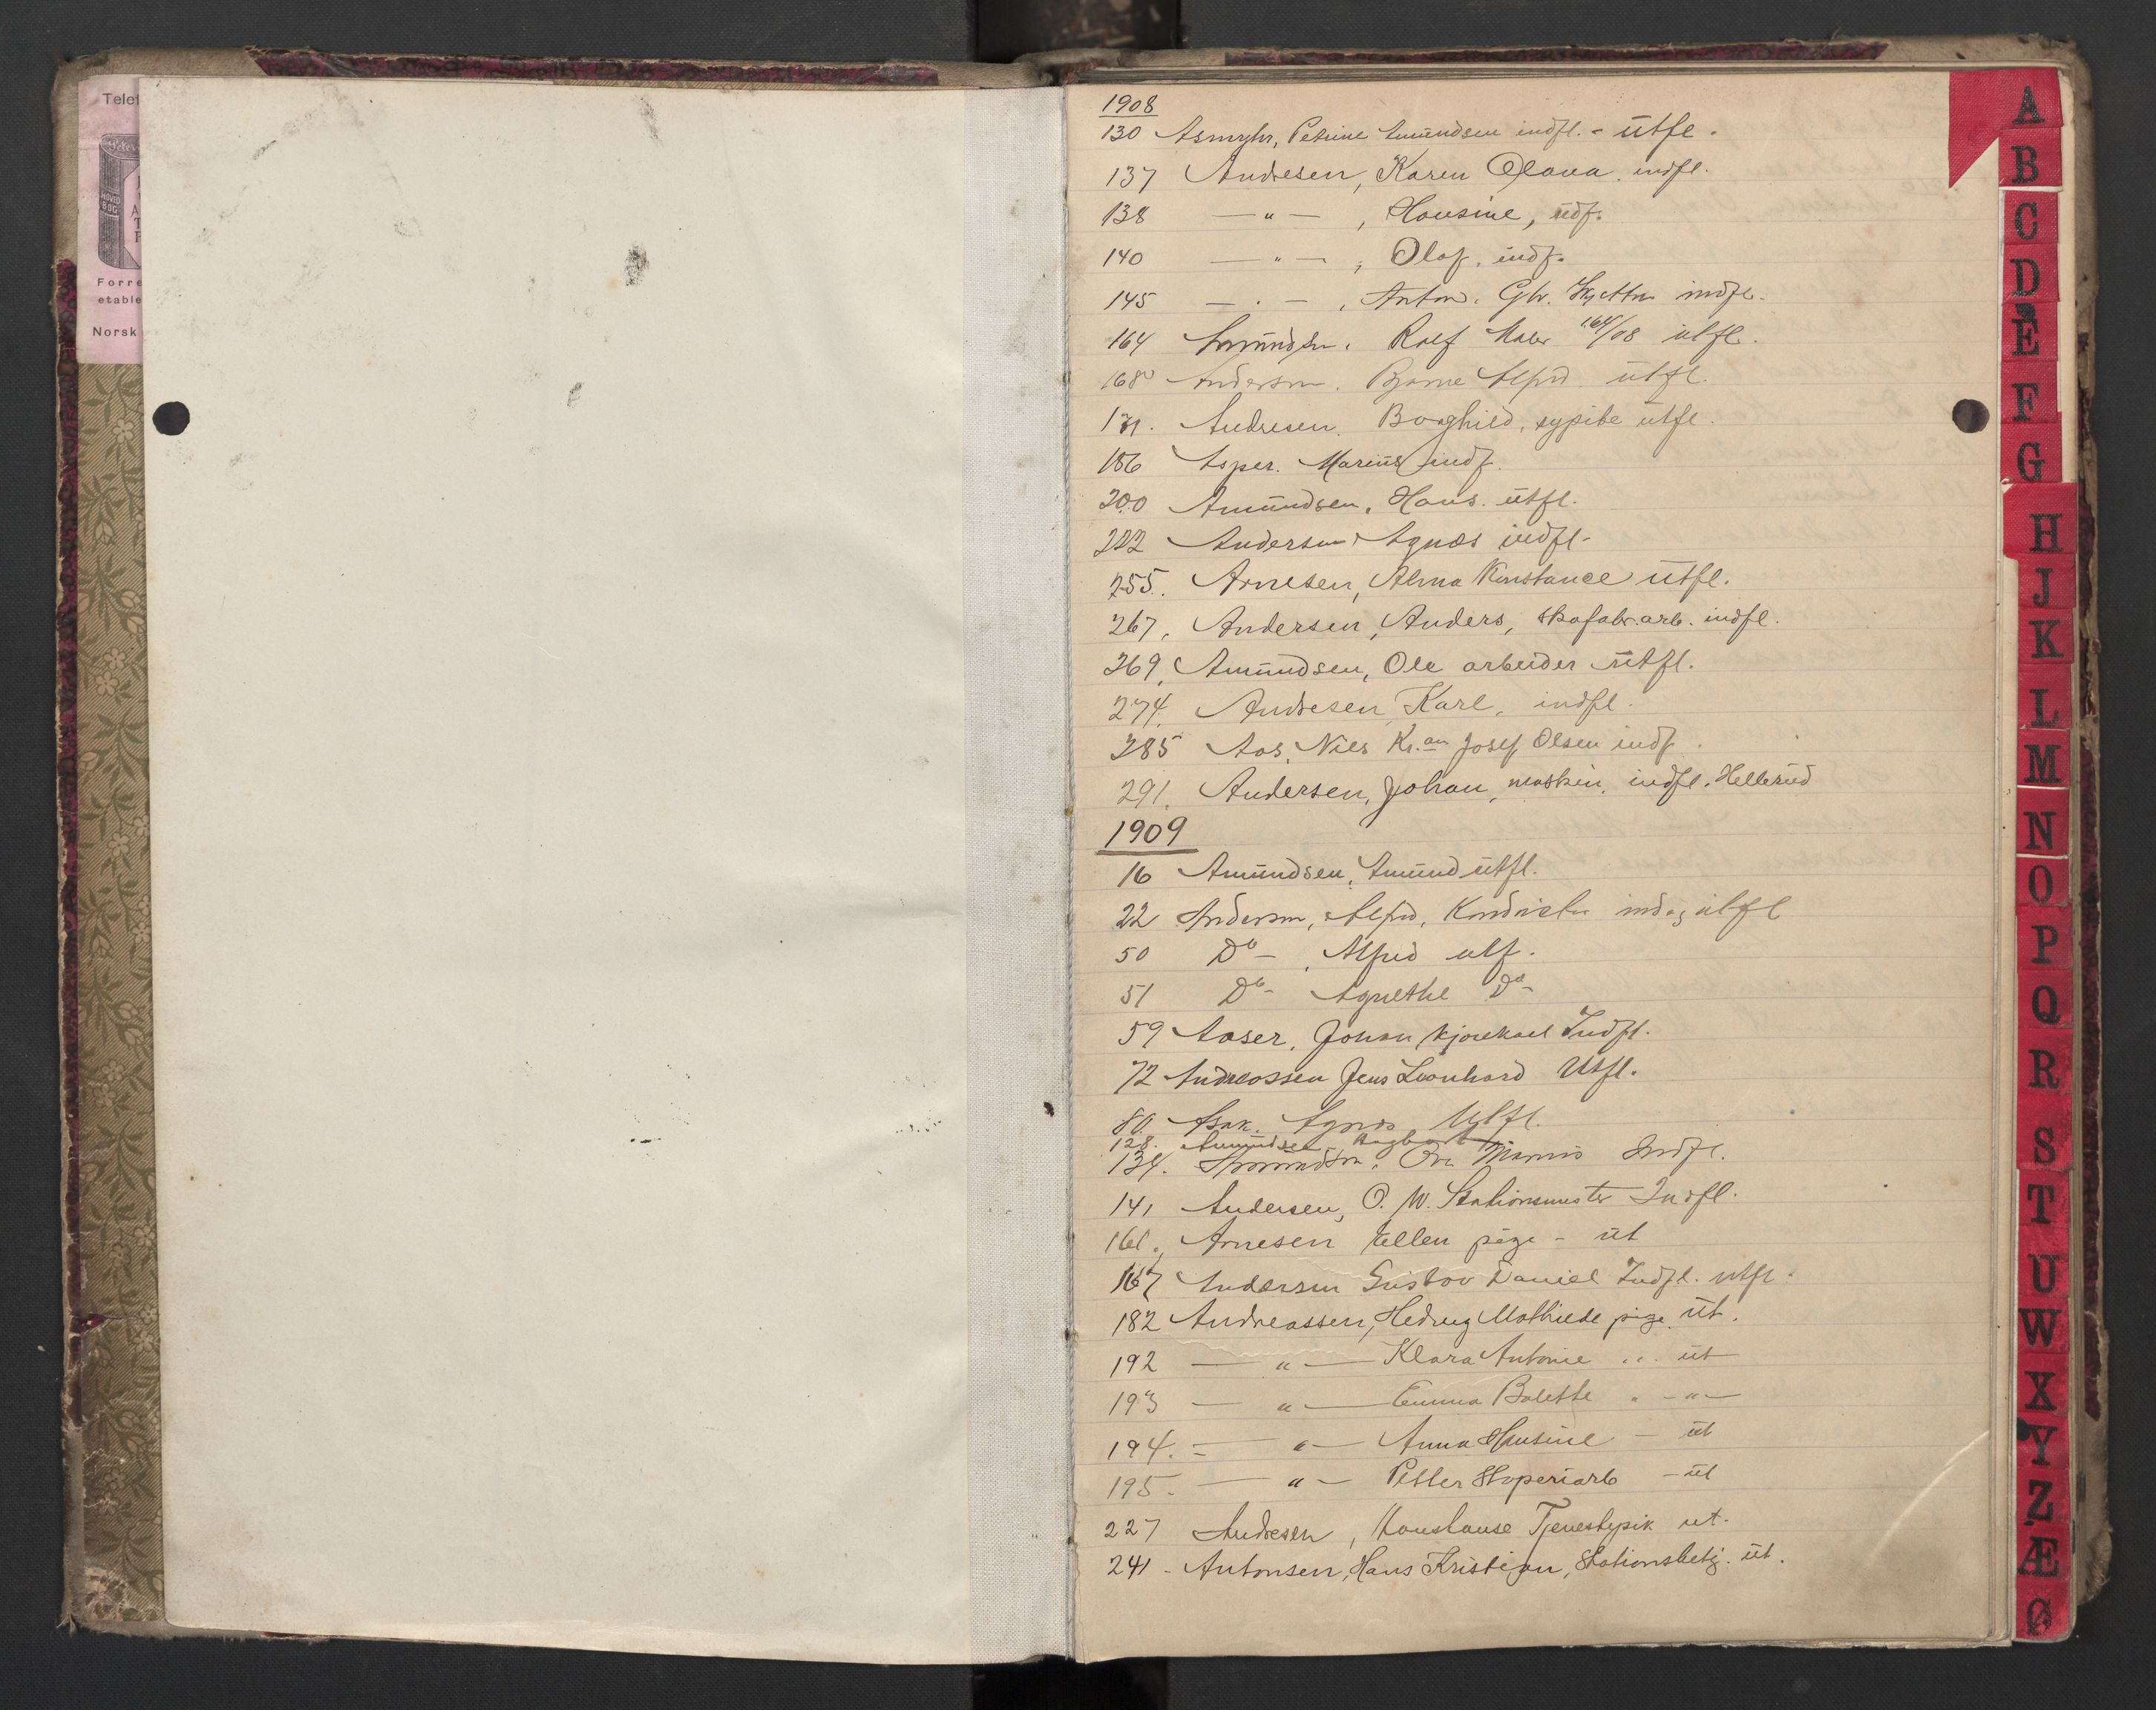 Telef
HOVED
BOG
Forre
etable
Norsk
1908
130 Asmyhr, Petrine Amundsen indfl. - utfl.
137 Andresen, Karen Olava. indfl.
138 — " — , Hansine, udf.
140 — " — , Olaf. indf.
145 — " — , Anton. indfl.
164 Amundsen. Rolf Maler 164/08 utfl.
168 Andersen. Bjarne Alfred. utfl.
171. Andresen. Borghild, sypike utfl.
186 Asper. Marius indf.
200 Amundsen, Hans. utfl.
222 Andersen Agnes indfl.
255. Arnesen, Alma Konstance utfl.
267. Andersen, Anders, skofabr.arb. indfl.
269. Amundsen, Ole arbeider utfl.
274. Andresen Karl, indfl.
285 Aas, Nils Kr.an Josef Olsen indf.
291. Andersen, Johan, maskin. indfl. Hellerud
1909
16 Amundsen, Amund utfl.
22 Andersen, Alfred, Konditor ind og utfl
50 Do — , Alfred utf.
51 Do - Agnethe Do -
59 Aaser, Johan Indfl.
72 Andreassen Jens Leonhard Utfl.
80. Ask. Agnes Utfl.
128. Amundsen
134. Amundsen. Indfl.
141 Andersen, O. M. Stationsmester Indfl.
161. Arnesen Ellen pige - ut
167 Andersen Gustav Daniel Indfl. utfl.
182 Andreassen, Hedvig Mathilde pige ut.
192 — " — Klara Antonie ... ut
193 — " — Emma Bolette " - " -
194. - — " — Anna Hansine — ut
195. — " — Petter Støperiarb — ut
227 Andresen, Konstanse Tjenestepik ut.
241 - Antonsen, Hans Kristian, Stationsbetj. ut.
A
B
C
D
E
F
G
H
J
K
L
M
N
O
P
Q
R
S
T
U
W
X
Y
Z
Æ
Ø